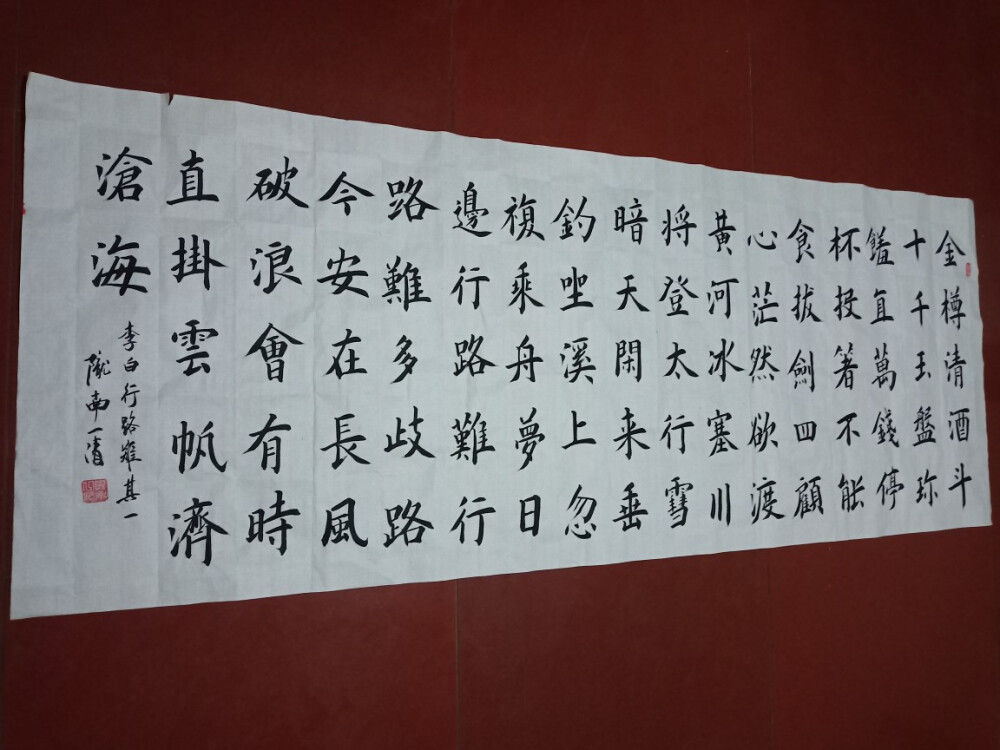 金樽清酒斗
十千玉盤珎
饈直萬錢停
杯投箸不能
食拔劍四顧
心茫然欲渡
黃河冰塞川
將登太行雪
暗天閑来垂
釣坐溪上忽
複乘舟夢日
邊行路難行
路難多歧路
今安在長風
破浪會有時
直掛雲帆濟
滄海
李白行路難其一
隴南一清